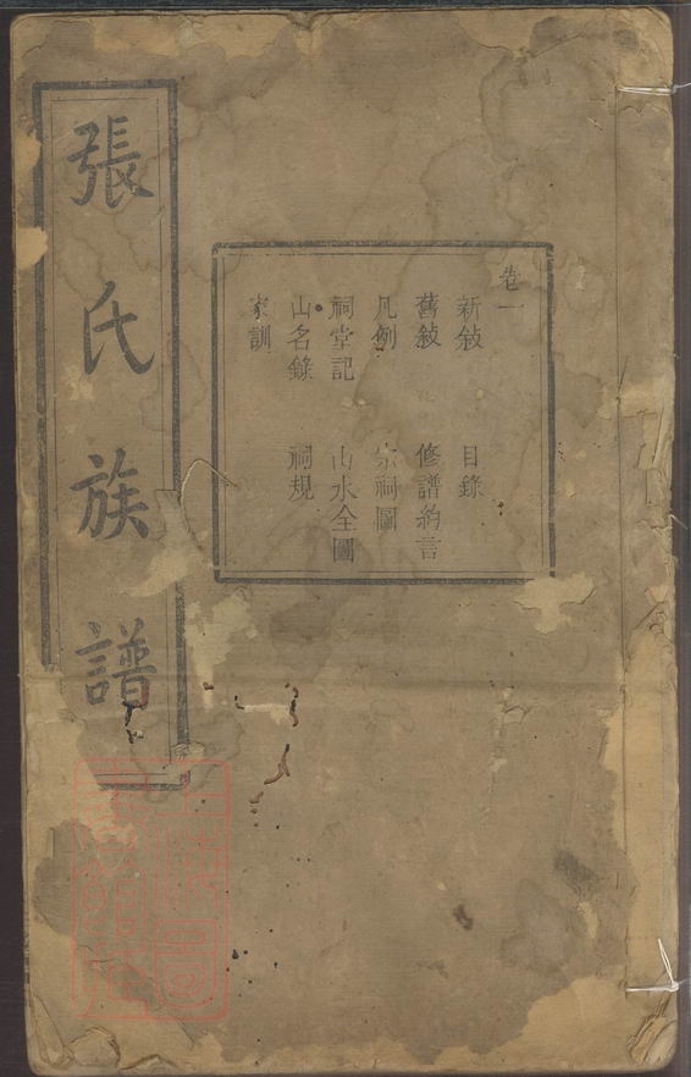 張氏族譜
卷一
新敍 目錄
舊敍 修譜約言
凡例 宗祠圖
祠堂記 山水全圖
山名錄 祠規
家訓